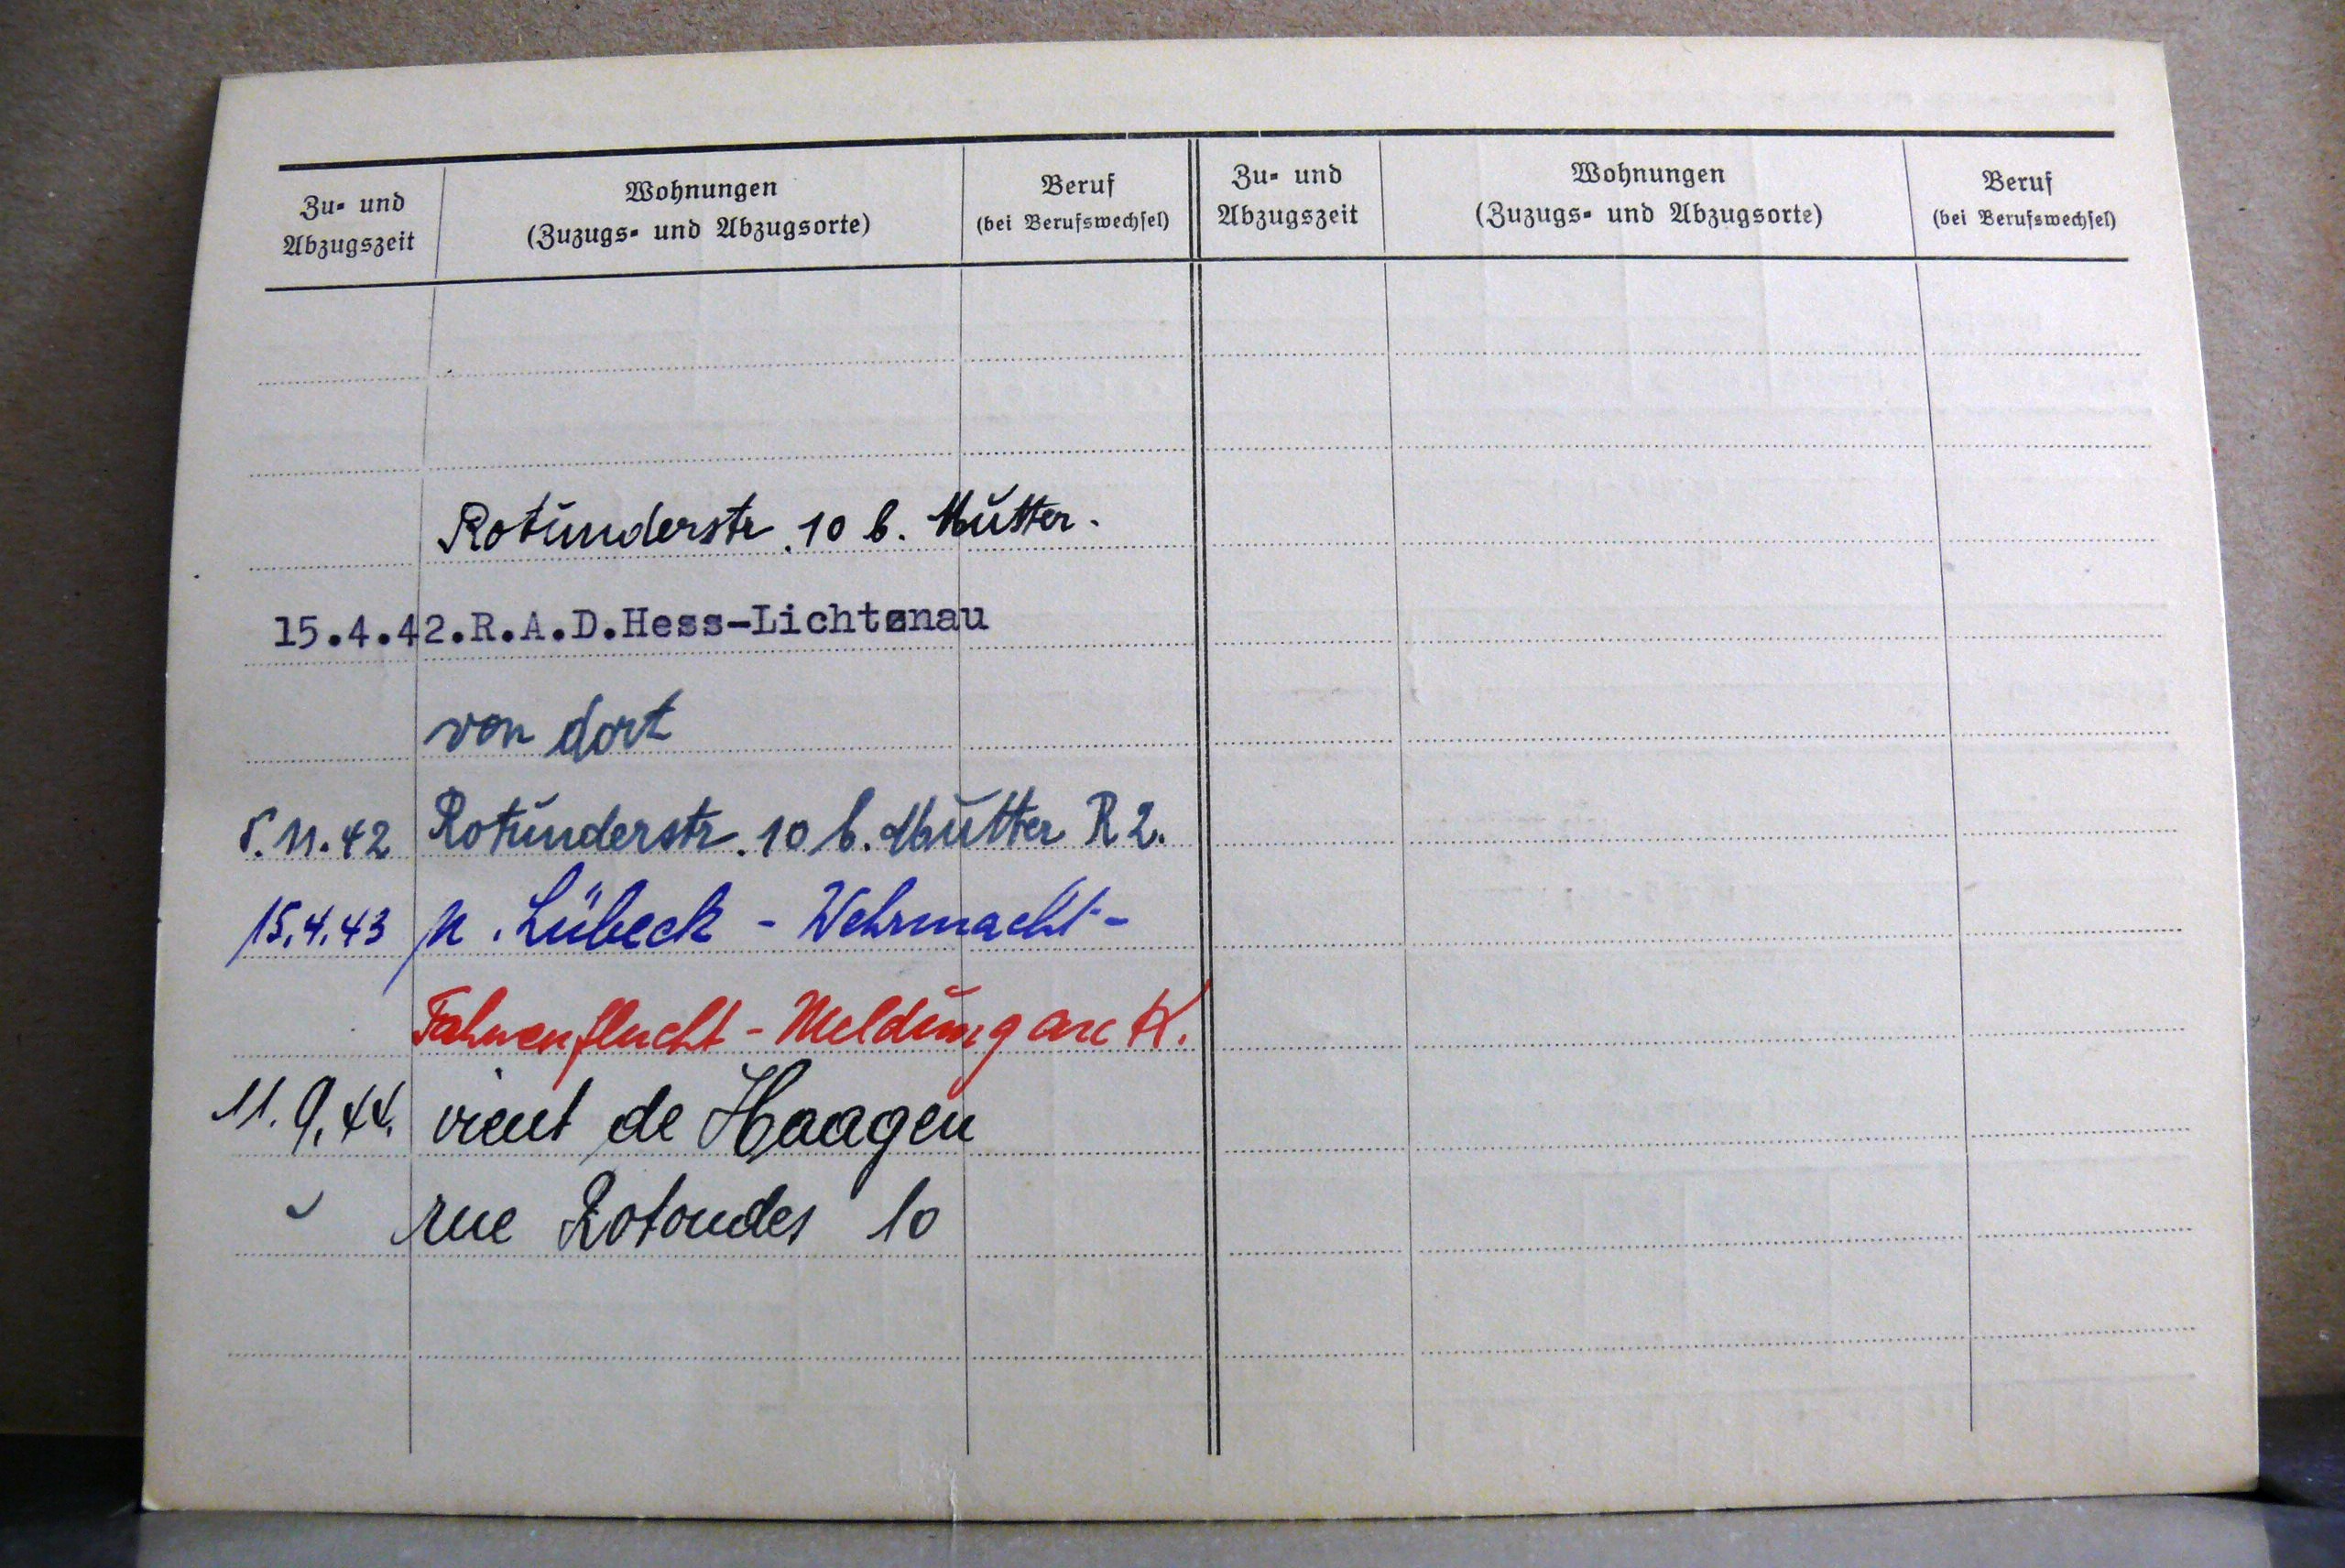 Zu- und
Abzugszeit
Wohnungen
(Zuzugs- und Abzugsorte)
Beruf
(bei Berufswechsel)
Zu- und
Abzugszeit
Wohnungen
(Zuzugs- und Abzugsorte)
Beruf
(bei Berufswechsel)
Rotunderstr. 10 b. Mutter.
15.4.42.R.A.D.Hess-Lichtenau
von dort
5.11.42 Rotunderstr. 10 b. Mutter R 2.
15.4.43 n. Lübeck - Wehrmacht -
Fahnenflucht - Meldung an K.
11.9.44. vient de Haagen
rue Rotondes 10